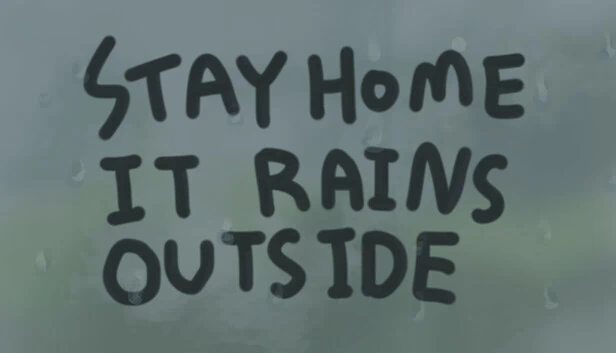 STAY HOME
IT RAINS
OUTSIDE